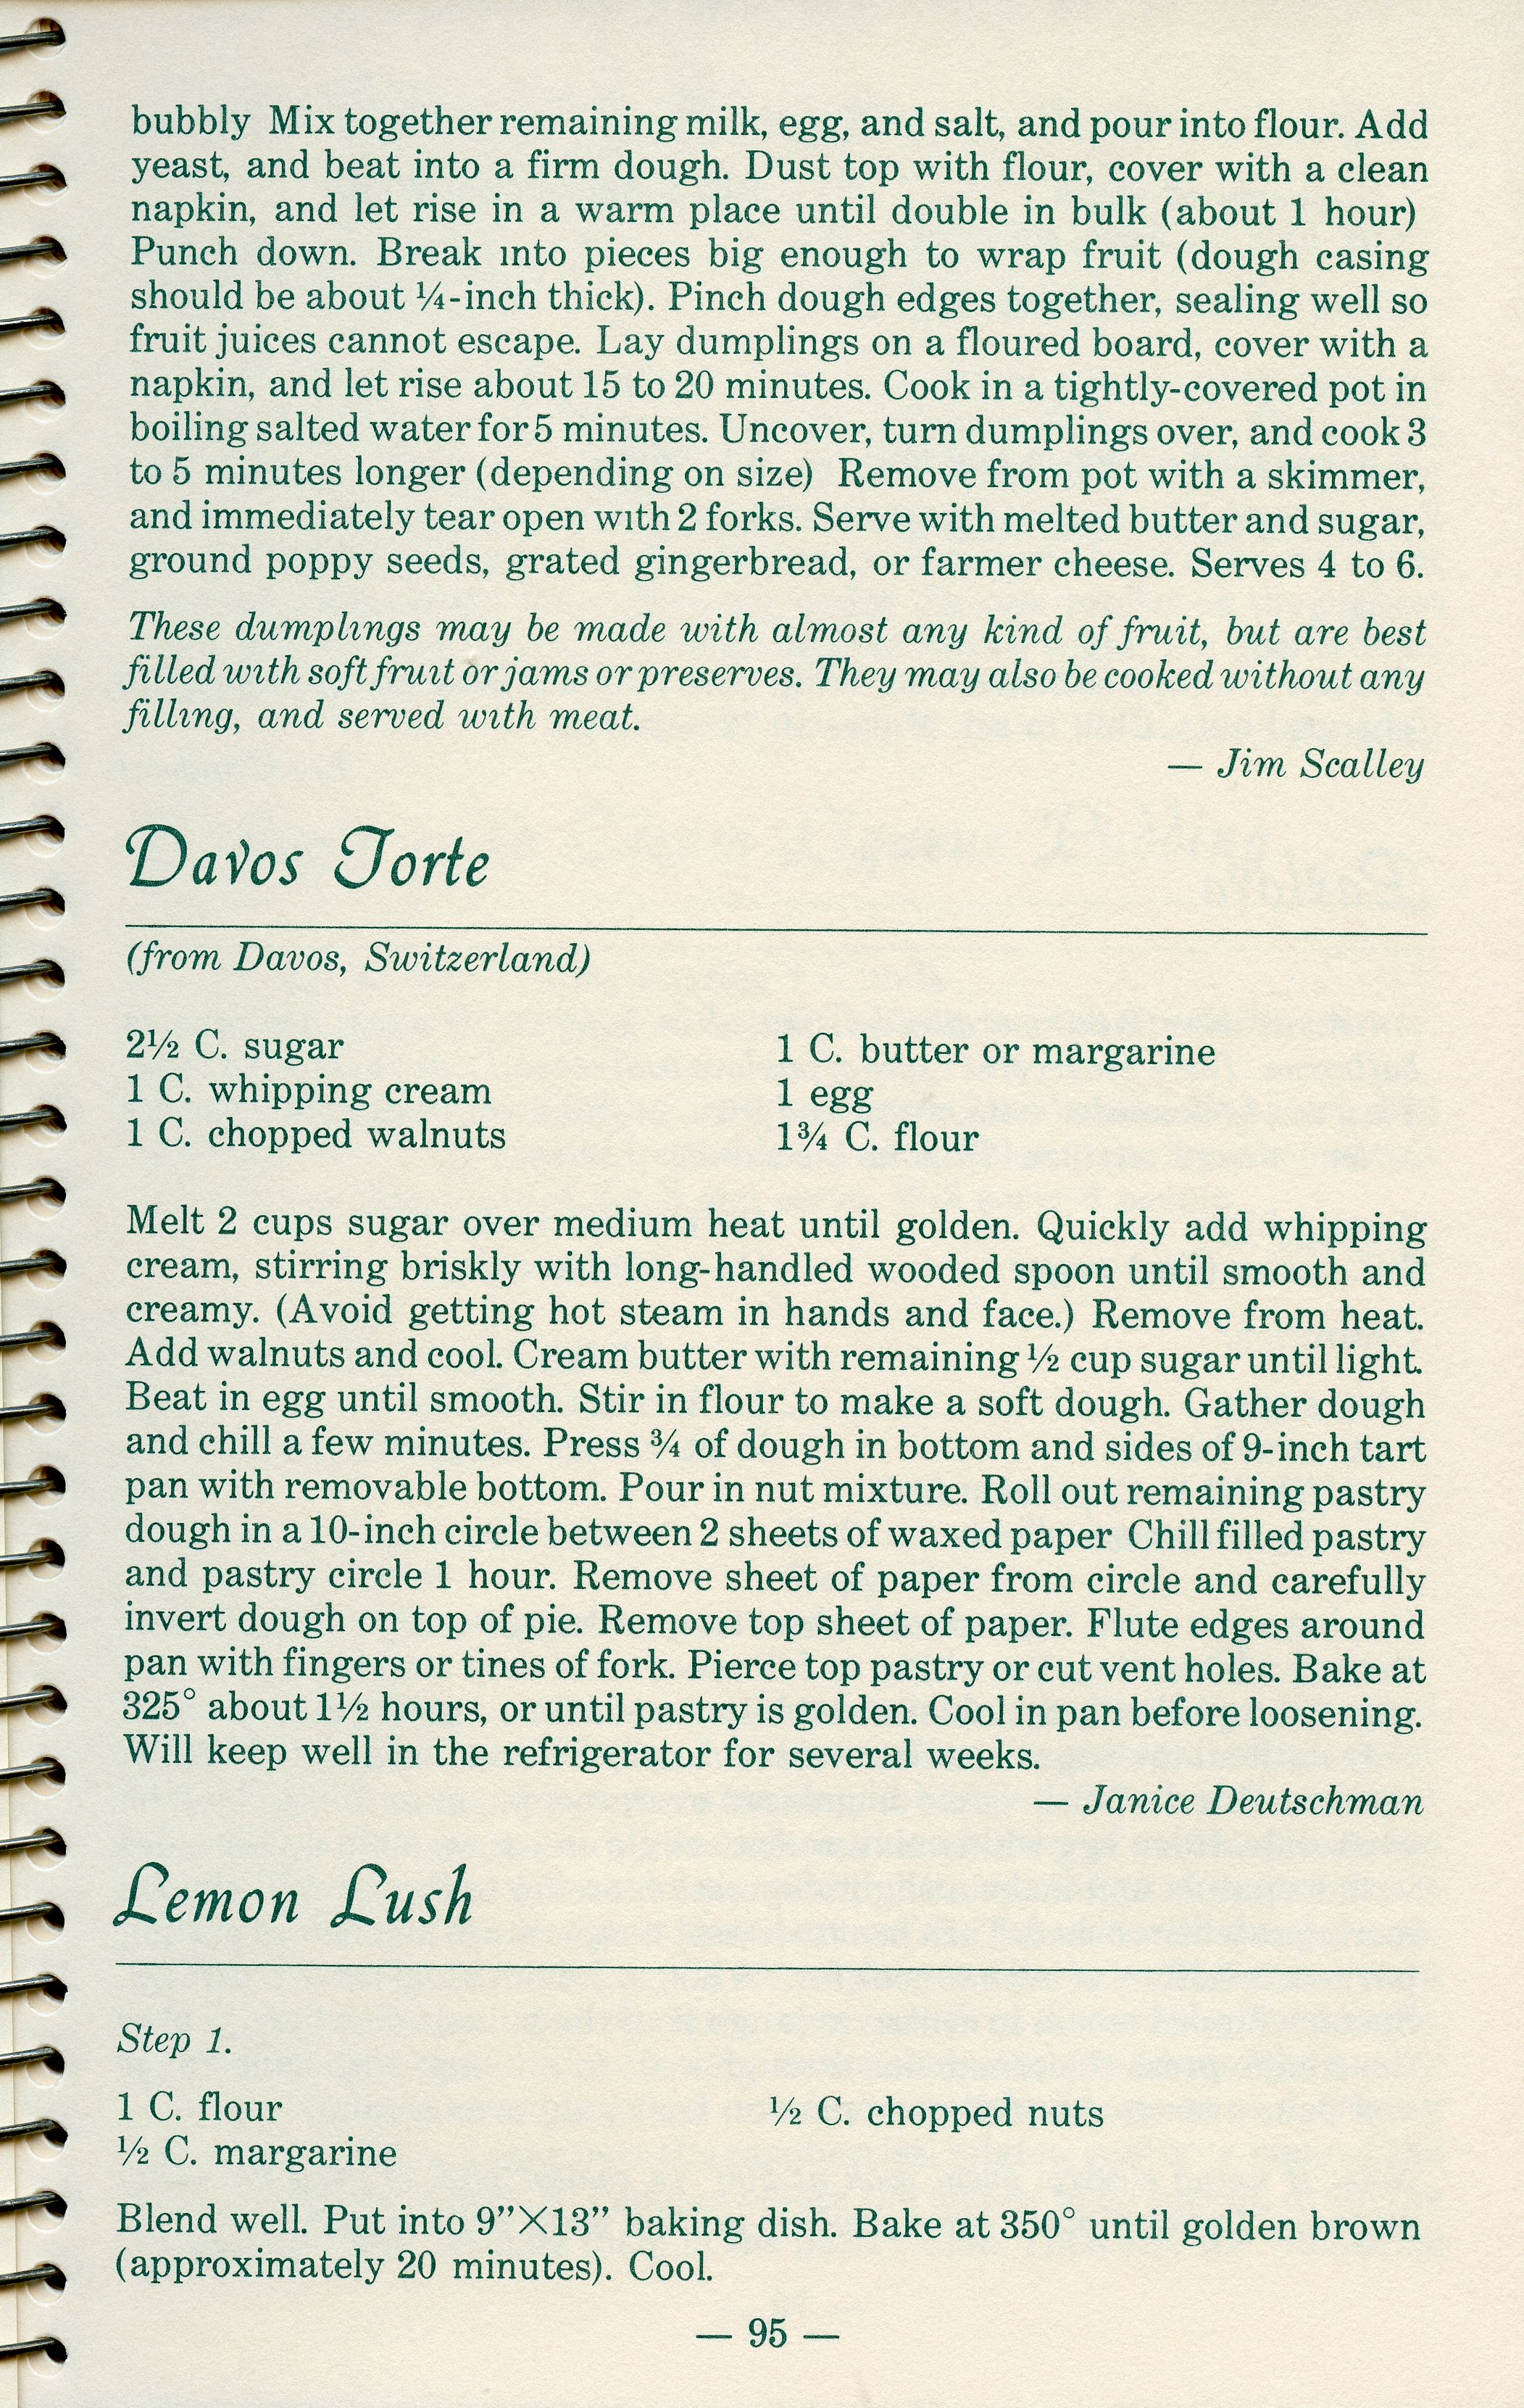 bubbly Mix together remaining milk, egg, and salt, and pour into flour. Add
yeast, and beat into a firm dough. Dust top with flour, cover with a clean
napkin, and let rise in a warm place until double in bulk (about 1 hour)
Punch down. Break into pieces big enough to wrap fruit (dough casing
should be about ¼-inch thick). Pinch dough edges together, sealing well so
fruit juices cannot escape. Lay dumplings on a floured board, cover with a
napkin, and let rise about 15 to 20 minutes. Cook in a tightly-covered pot in
boiling salted water for 5 minutes. Uncover, turn dumplings over, and cook 3
to 5 minutes longer (depending on size) Remove from pot with a skimmer,
and immediately tear open with 2 forks. Serve with melted butter and sugar,
ground poppy seeds, grated gingerbread, or farmer cheese. Serves 4 to 6.
These dumplings may be made with almost any kind of fruit, but are best
filled with soft fruit or jams or preserves. They may also be cooked without any
filling, and served with meat.
— Jim Scalley
Davos Torte
(from Davos, Switzerland)
2½ C. sugar
1 C. whipping cream
1 C. chopped walnuts
1 C. butter or margarine
1 egg
1¾ C. flour
Melt 2 cups sugar over medium heat until golden. Quickly add whipping
cream, stirring briskly with long-handled wooded spoon until smooth and
creamy. (Avoid getting hot steam in hands and face.) Remove from heat.
Add walnuts and cool. Cream butter with remaining ½ cup sugar until light.
Beat in egg until smooth. Stir in flour to make a soft dough. Gather dough
and chill a few minutes. Press ¾ of dough in bottom and sides of 9-inch tart
pan with removable bottom. Pour in nut mixture. Roll out remaining pastry
dough in a 10-inch circle between 2 sheets of waxed paper Chill filled pastry
and pastry circle 1 hour. Remove sheet of paper from circle and carefully
invert dough on top of pie. Remove top sheet of paper. Flute edges around
pan with fingers or tines of fork. Pierce top pastry or cut vent holes. Bake at
325° about 1½ hours, or until pastry is golden. Cool in pan before loosening.
Will keep well in the refrigerator for several weeks.
— Janice Deutschman
Lemon Lush
Step 1.
1 C. flour
½ C. margarine
½ C. chopped nuts
Blend well. Put into 9”X13” baking dish. Bake at 350° until golden brown
(approximately 20 minutes). Cool.
— 95 —